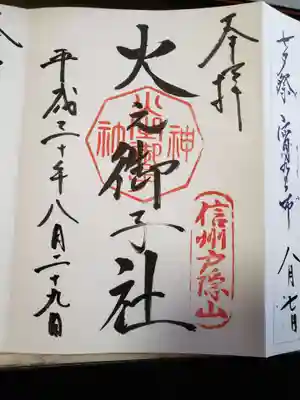 七夕祭 八月七日
奉拝
信州戸隠山
火之御子社
平成三十年八月二十九日